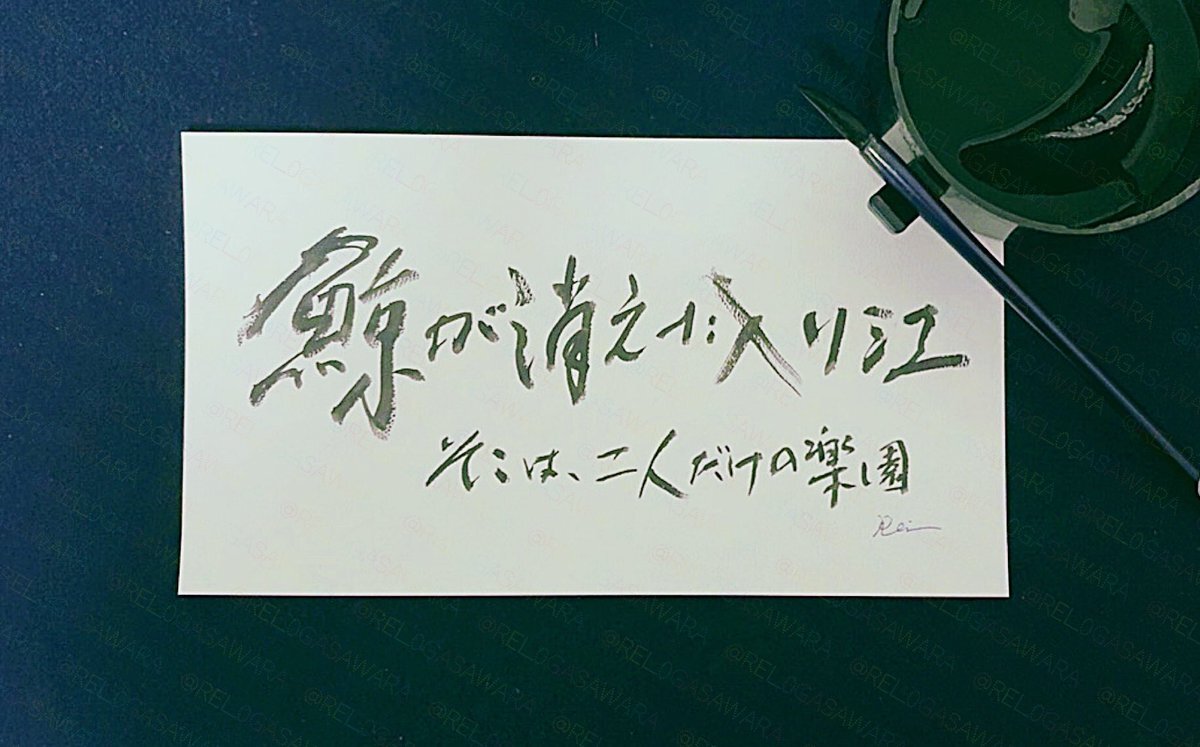 鯨が消えた入り江
そこは、二人だけの楽園
Rei
@RELOGASAWARA